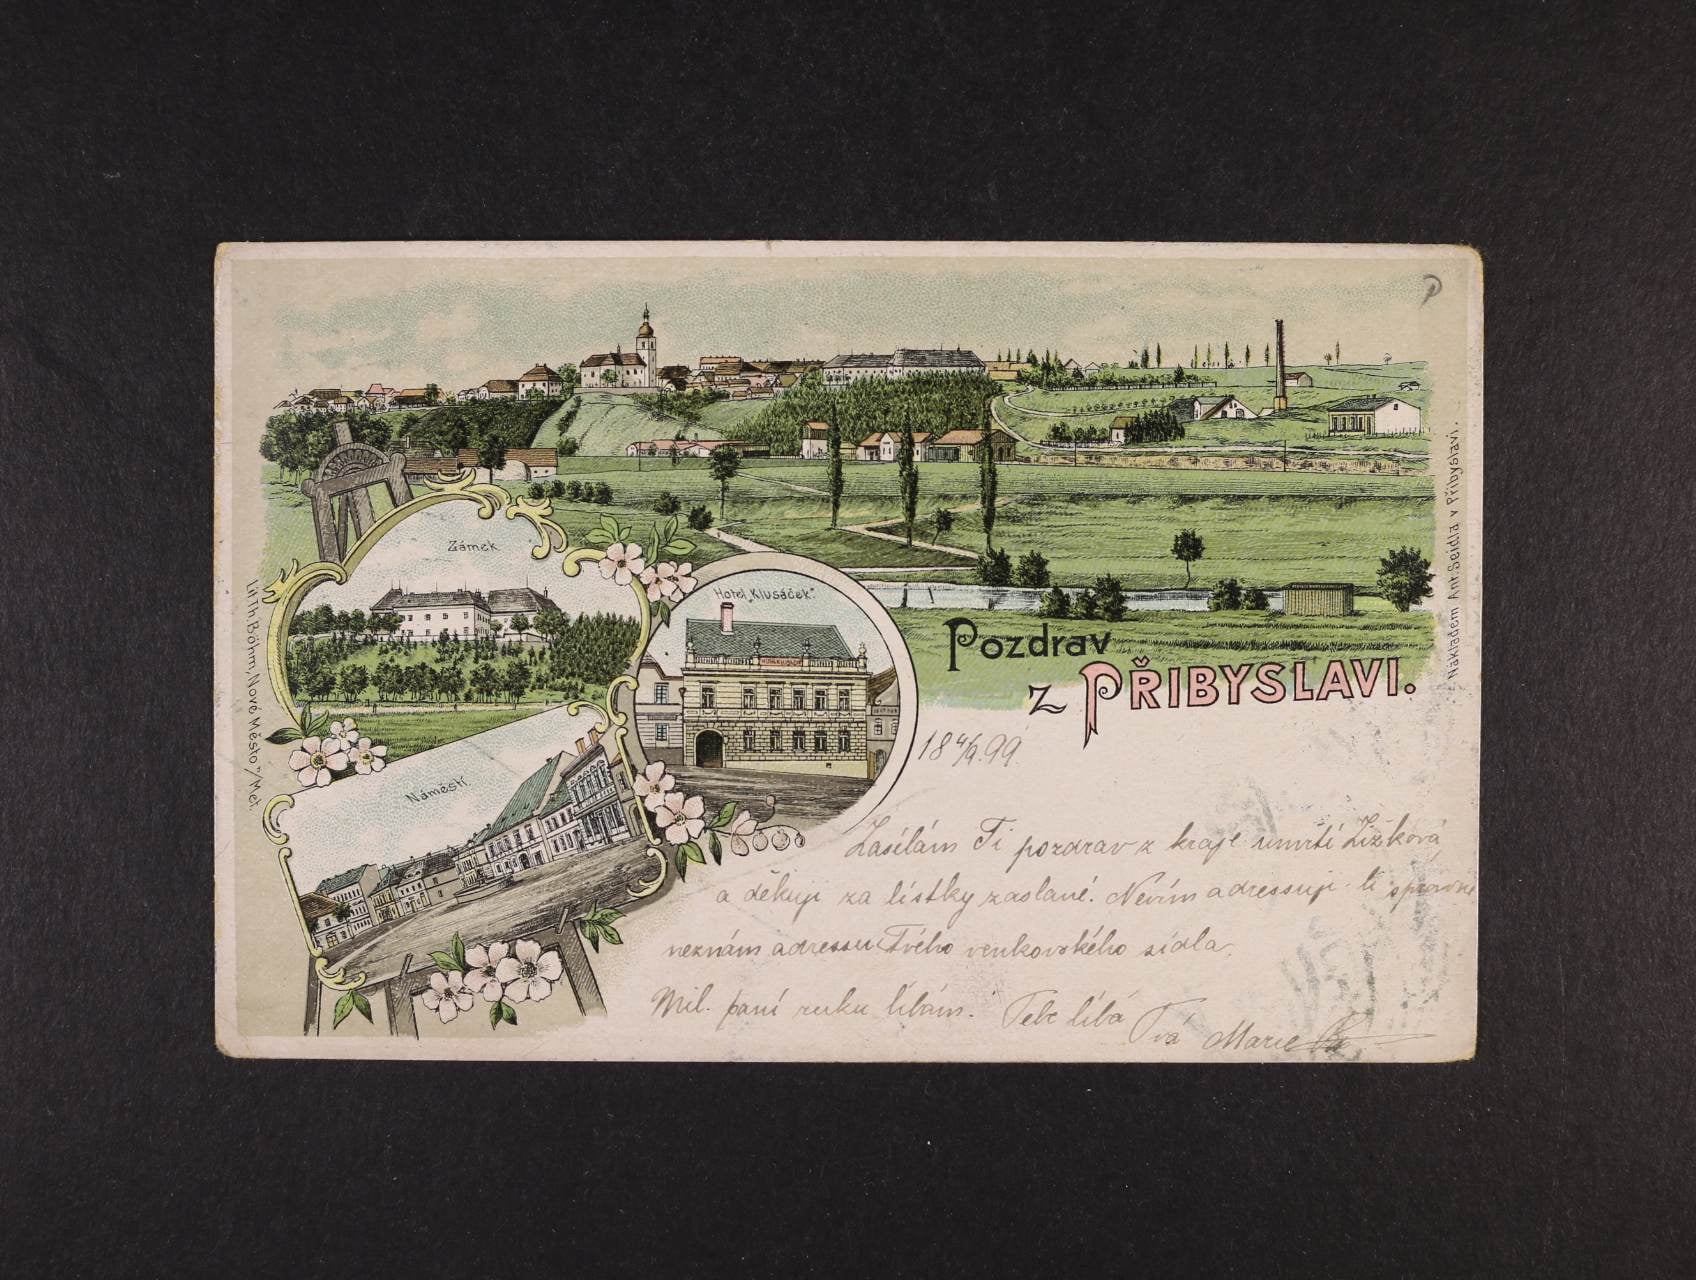 Zámek
Hotel „Klusáček“
Náměstí
Pozdrav
z PŘIBYSLAVI.
Nákladem Ant. Seidla v Přibyslavi.
Lith. Böhm, Nové Město n/Met.
18 4/9 99
Zasílám Ti pozdrav z kraje úmrtí Žižkova
a děkuji za lístky zaslané. Nevím adressuji-li správně
neznám adressu Tvého venkovského sídla.
Mil. paní ruku líbám. Tebe líbá
Tvá Marie
P